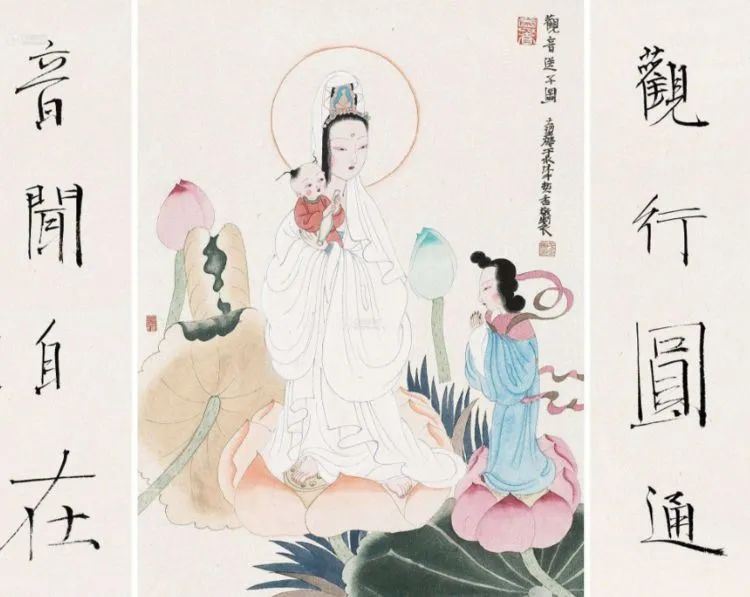 觀行圓通
觀音送子圖
音聞自在